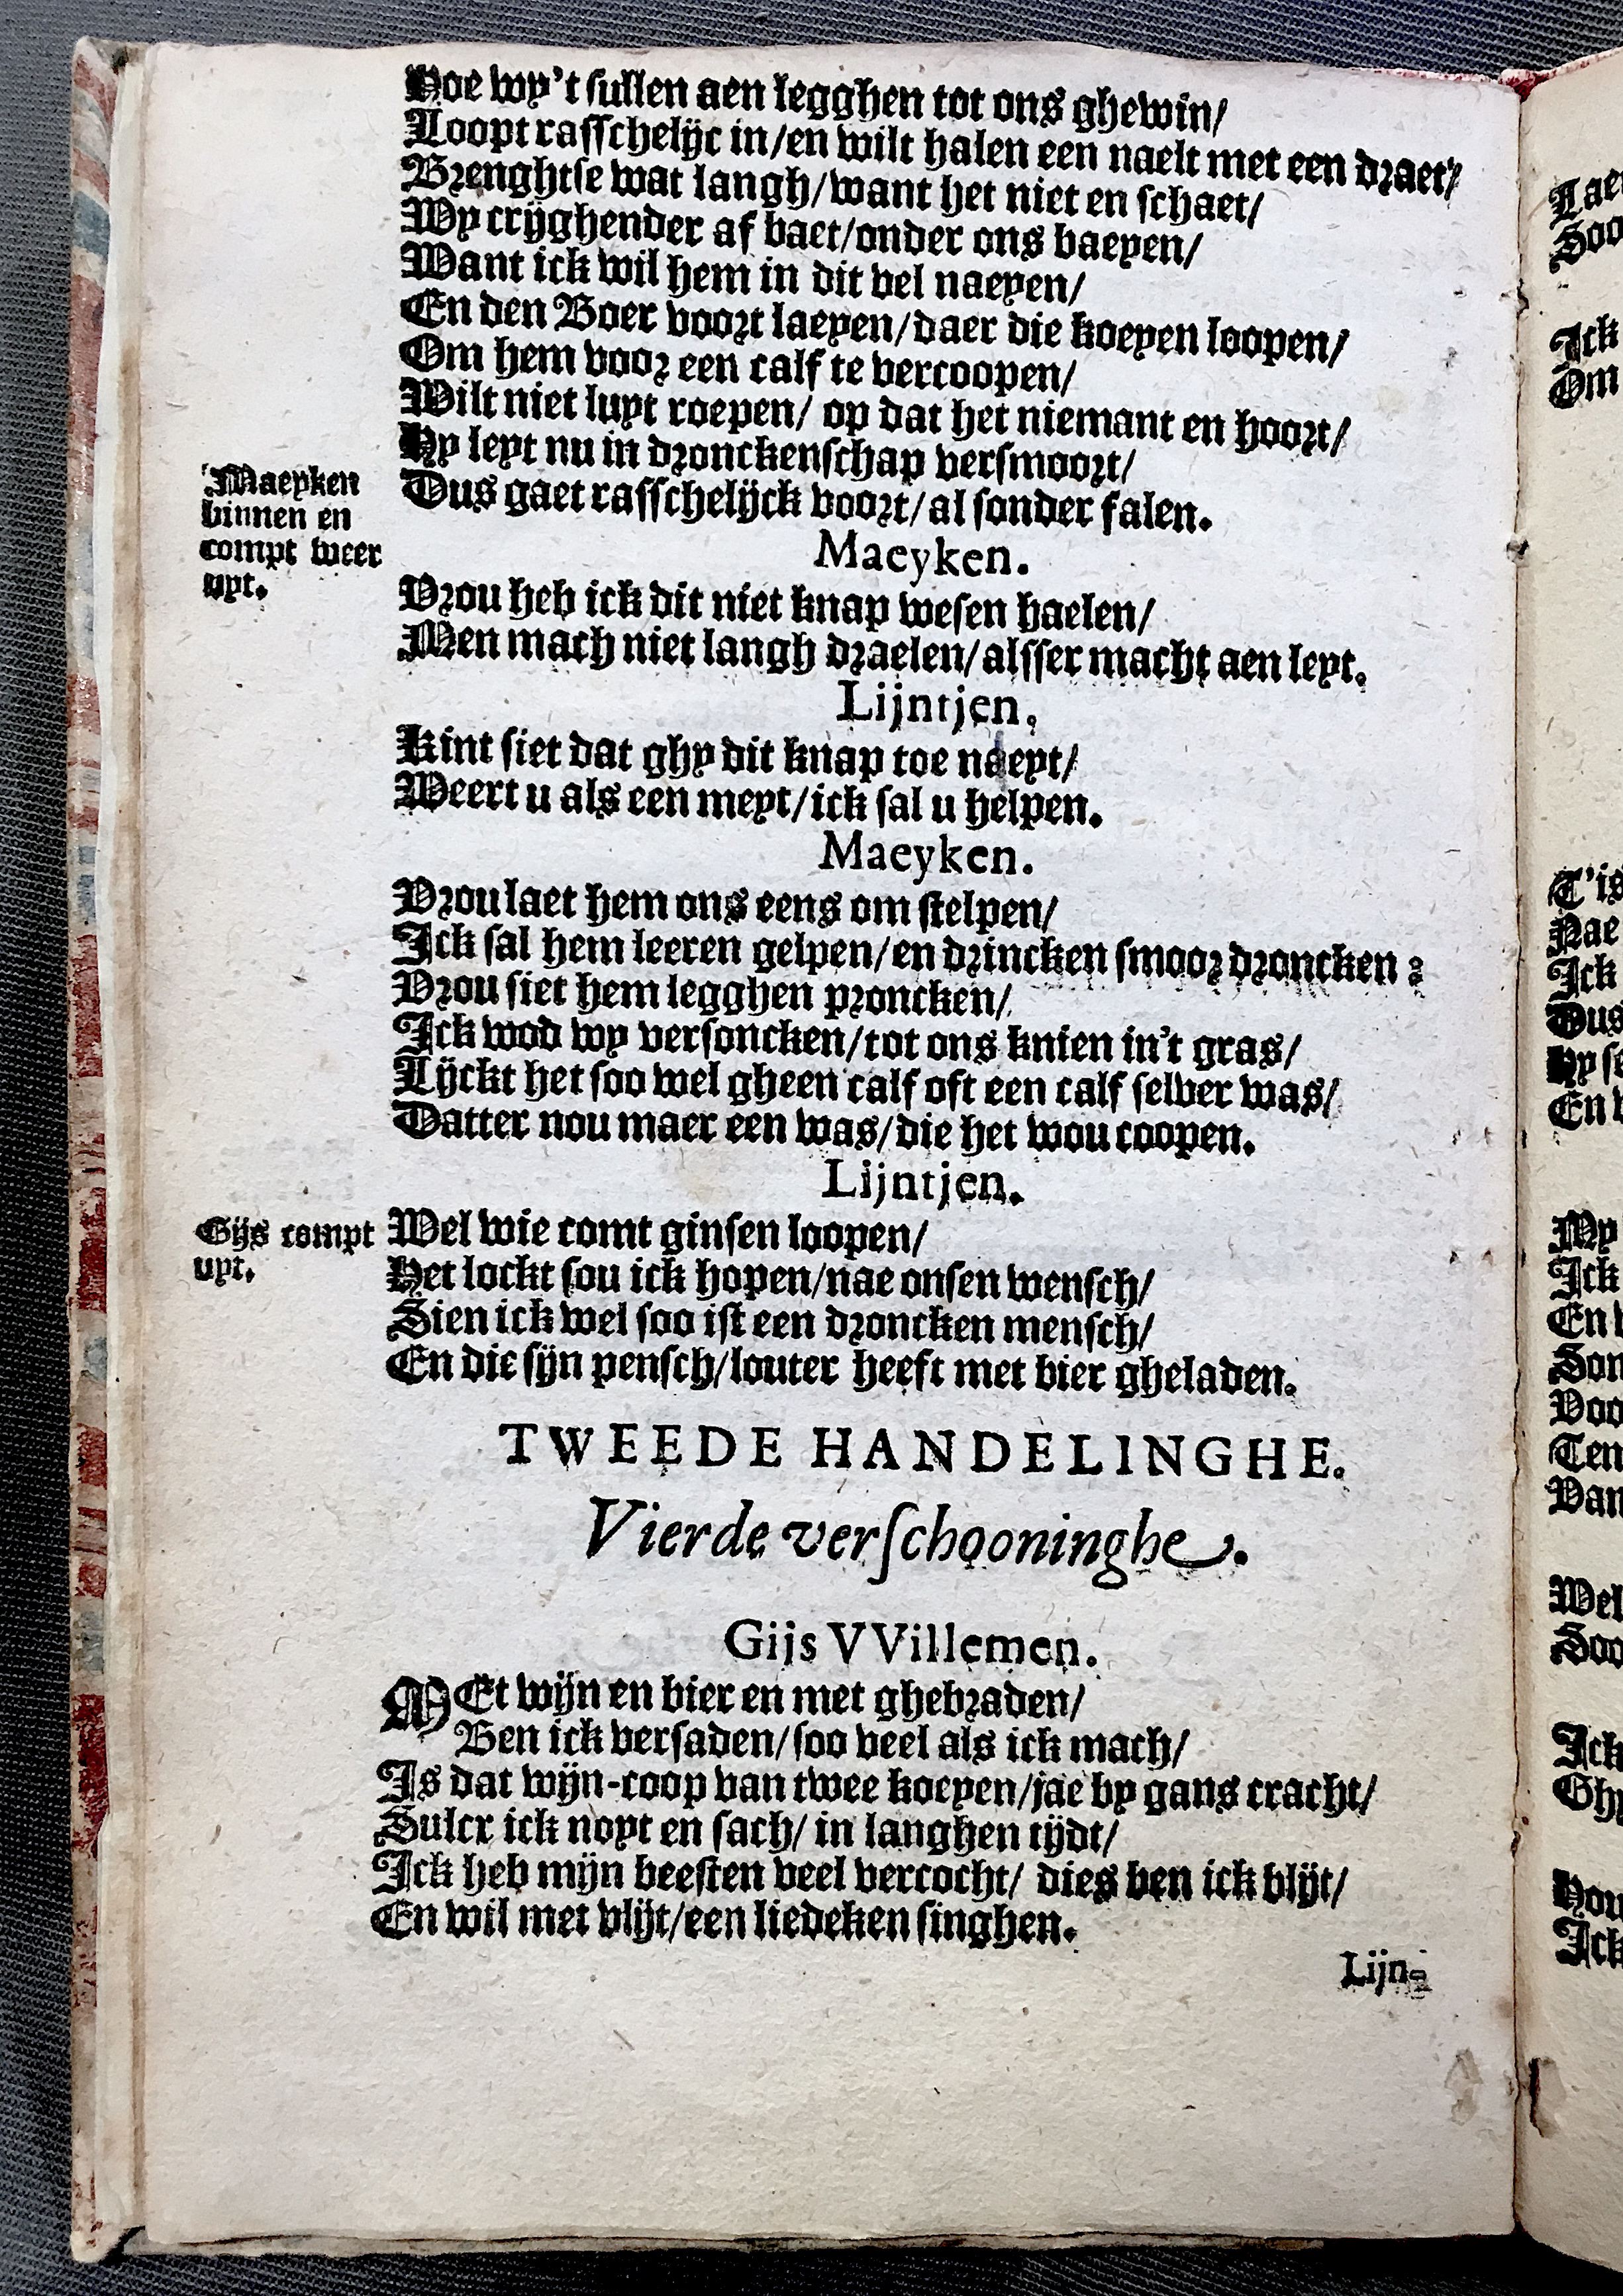 Hoe wy't sullen aen legghen tot ons ghewin/
Loopt rasschelijc in/en wilt halen een naelt met een draet/
Brenghtse wat langh/want het niet en schaet/
Wy crijghender af baet/onder ons baeyen/
Want ick wil hem in dit vel naeyen/
En den Boer voort laeyen/daer die koeyen loopen/
Om hem voor een calf te vercoopen/
Wilt niet luyt roepen/ op dat het niemant en hoort/
Hy leyt nu in dronckenschap versmoort/
Dus gaet rasschelijck voort/al sonder falen.
Maeyken
binnen en
compt weer
uyt.
Maeyken.
Vrou heb ick dit niet knap wesen haelen/
Men mach niet langh draelen/alsser macht aen leyt.
Lijntjen.
Kint siet dat ghy dit knap toe naeyt/
Weert u als een meyt/ick sal u helpen.
Maeyken.
Vrou laet hem ons eens om stelpen/
Ick sal hem leeren gelpen/en drincken smoor droncken:
Vrou siet hem legghen proncken/
Ick wod wy versoncken/tot ons knien in't gras/
Lijckt het soo wel gheen calf oft een calf selver was/
Datter nou maer een was/die het wou coopen.
Lijntjen.
Gijs compt
uyt.
Wel wie comt ginsen loopen/
Het lockt sou ick hopen/nae onsen wensch/
Sien ick wel soo ist een droncken mensch/
En die sijn pensch/louter heeft met bier gheladen.
TWEEDE HANDELINGHE.
Vierde verschooninghe.
Gijs VVillemen.
MEt wijn en bier en met ghebraden/
Ben ick versaden/soo veel als ick mach/
Is dat wijn-coop van twee koeyen/jae by gans cracht/
Sulcx ick noyt en sach/ in langhen tijdt/
Ick heb mijn beesten veel vercocht/ dies ben ick blijt/
En wil met vlijt/een liedeken singhen.
Lijn-
Lae
Soo
Ick
Om
T'is
Nae
Ick
Dus
Hy se
En
My
Ick
En
Son
Voo
Ten
Van
Wel
Soo
Ick
Ghy
Nou
Ick